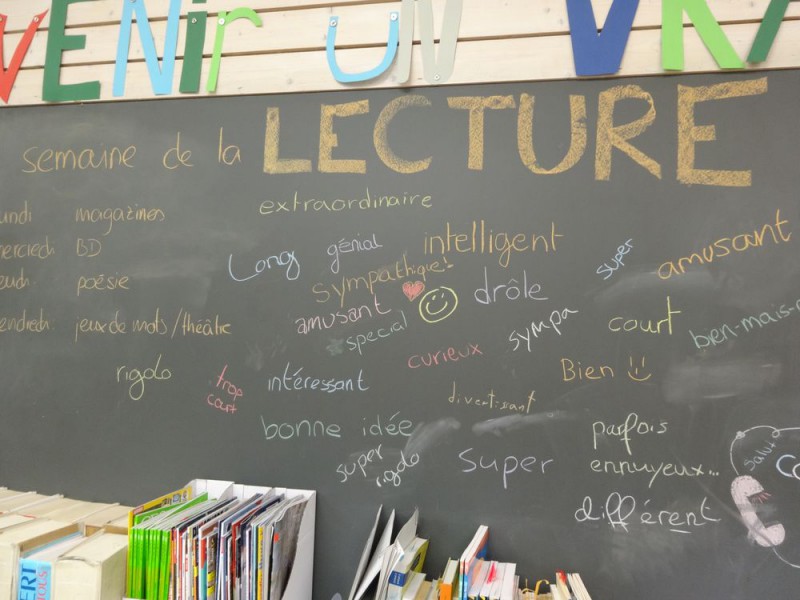 VENir UN
semaine de la LECTURE
magazines
BD
poésie
jeux de mots / théâtre
extraordinaire
Long
génial
intelligent
super
amusant
sympathique!
drôle
amusant
special
sympa
court
curieux
rigolo
trop
court
intéressant
Bien
divertissant
bonne idée
super
rigolo
super
parfois
ennuyeux...
différent
Salut